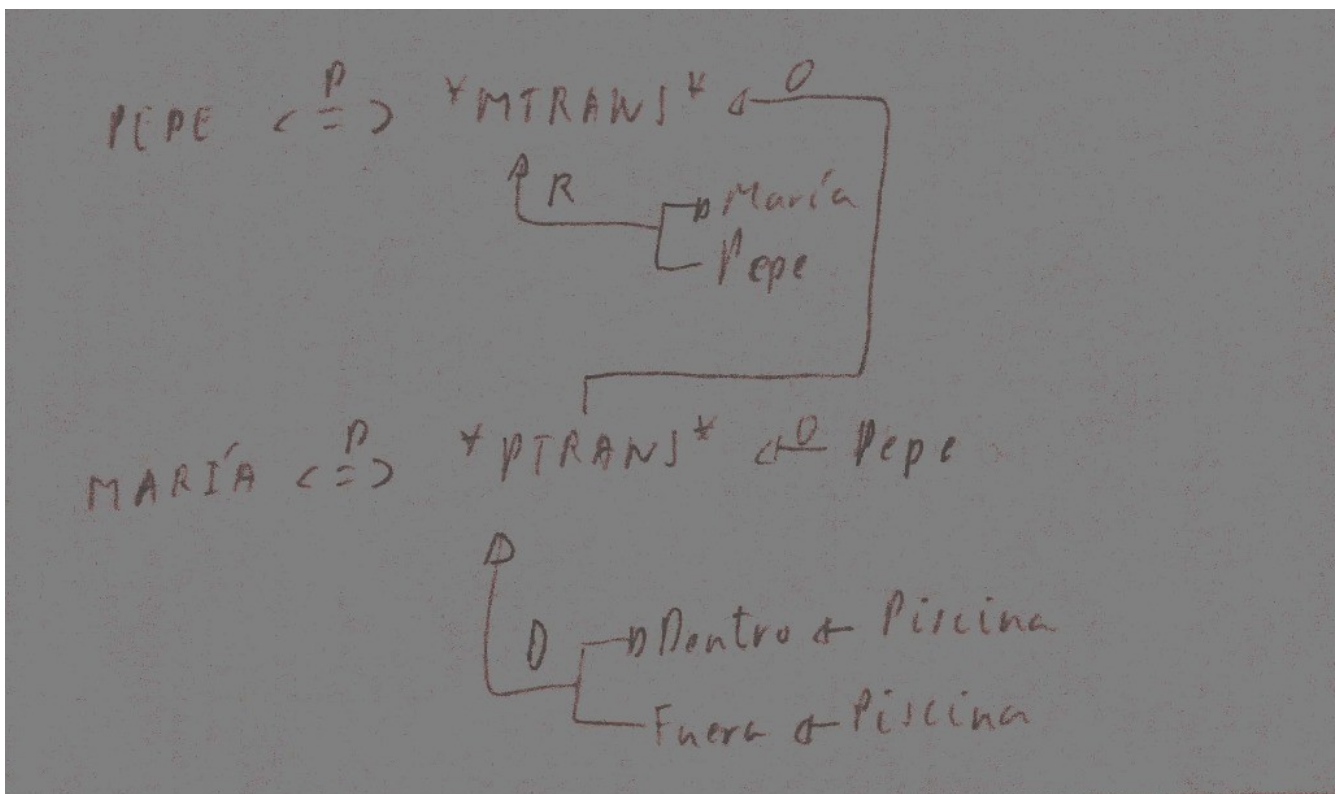 PEPE <=> P *MTRANS* O
R María
Pepe
MARÍA <=> P *PTRANS* O Pepe
D Dentro Piscina
Fuera Piscina